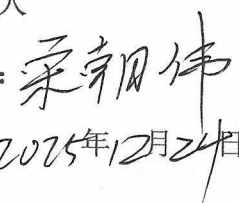 人
:荣朝伟
2025年12月24日